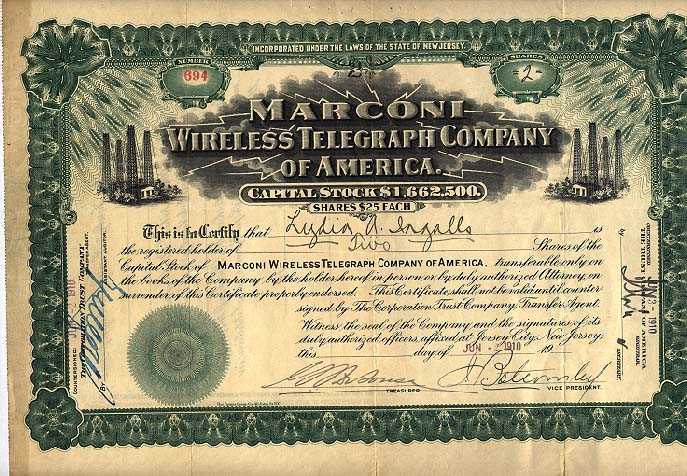 INCORPORATED UNDER THE LAWS OF THE STATE OF NEW JERSEY.
NUMBER
694
2
SHARES
-2-
MARCONI
WIRELESS TELEGRAPH COMPANY
OF AMERICA.
CAPITAL STOCK $1,662,500.
SHARES $25 EACH
This is to Certify that Lydia A. Ingalls is
the registered holder of Two Shares of the
Capital Stock of MARCONI WIRELESS TELEGRAPH COMPANY OF AMERICA. transferable only on
the books of the Company by the holder hereof in person or by duly authorized Attorney, on
surrender of this Certificate properly endorsed. This Certificate shall not be valid until counter
signed by The Corporation Trust Company, Transfer Agent.
Witness the seal of the Company and the signatures of its
duly authorized officers, affixed at Jersey City, New Jersey,
this day of JUN 1910 19
TREASURER
VICE PRESIDENT.
COUNTERSIGNED
THE CORPORATION TRUST COMPANY
TRANSFER AGENT.
BY
1910
REGISTRAR
by